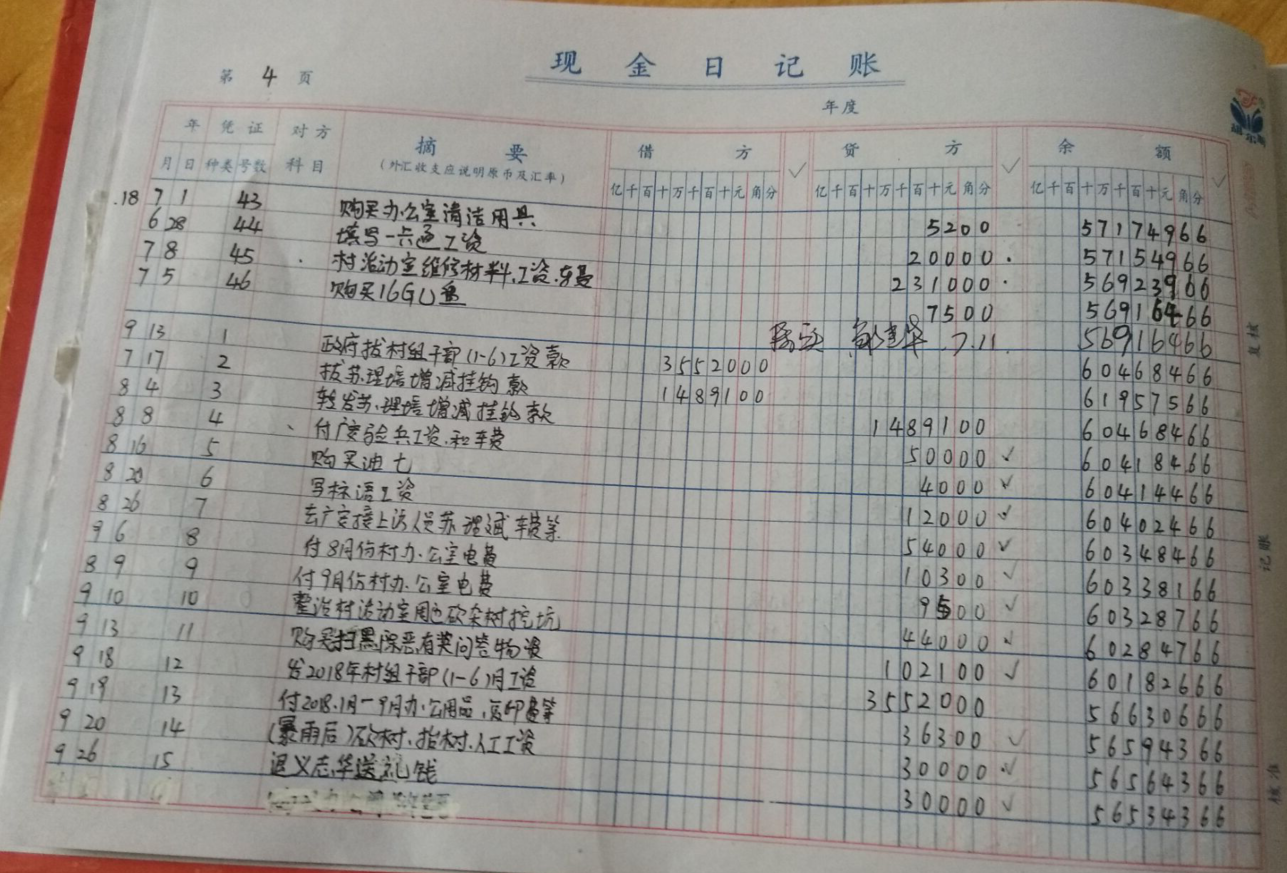 现金日记账
第 4 页
年度
年 凭证 对方 摘要 借方 ✓ 贷方 ✓ 余额 ✓
月 日 种类 号数 科目 (外汇收支应说明原币及汇率) 亿千百十万千百十元角分 亿千百十万千百十元角分 亿千百十万千百十元角分
.18 7 1 43 购买办公室清洁用具 5200 57174966
6 28 44 填写一卡通工资 20000 57154966
7 8 45 村活动室维修材料、工资、车费 231000 56923966
7 5 46 购买16GU盘 7500 56916466
7.11 56916466
9 13 1 政府拔村组干部(1-6)工资款 3552000 60468466
7 17 2 拔苏理墕增减挂钩款 1489100 61957566
8 4 3 转发苏理墕增减挂钩款 1489100 60468466
8 8 4 付广安验兵工资和车费 50000 ✓ 60418466
8 16 5 购买油七 4000 ✓ 60414466
8 20 6 写标语工资 12000 ✓ 60402466
8 26 7 去广安接上访人员苏理斌车费等 54000 ✓ 60348466
9 6 8 付8月份村办公室电费 10300 ✓ 60338166
8 9 9 付9月份村办公室电费 9500 ✓ 60328766
9 10 10 整治村活动室周边砍杂树挖坑 44000 ✓ 60284766
9 13 11 购买扫黑除恶有奖问答物资 102100 ✓ 60182666
9 18 12 发2018年村组干部(1-6)月工资 3552000 56630666
9 19 13 付2018.1月-9月办公用品,复印费等 36300 ✓ 56594366
9 20 14 (暴雨后)砍树、抬树、人工工资 30000 ✓ 56564366
9 26 15 退义志华送礼钱 30000 ✓ 56534366
复核
记账